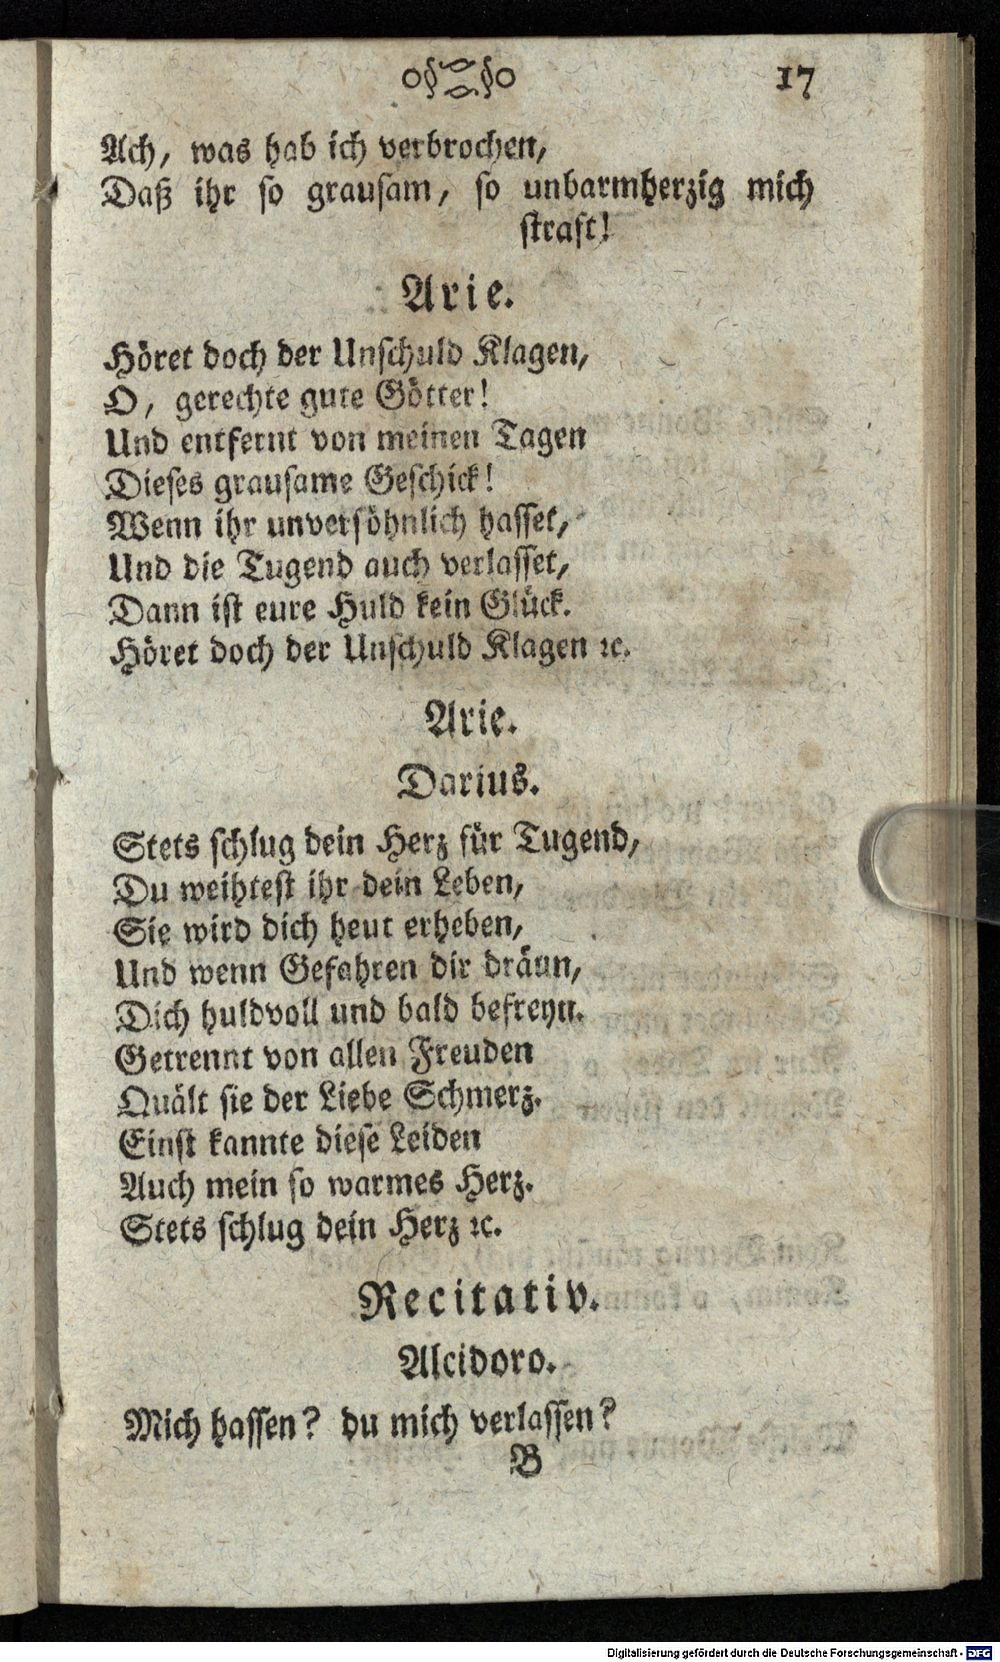 17
Ach, was hab ich verbrochen,
Daß ihr so grausam, so unbarmherzig mich
straft!
Arie.
Höret doch der Unschuld Klagen,
O, gerechte gute Götter!
Und entfernt von meinen Tagen
Dieses grausame Geschick!
Wenn ihr unversöhnlich hasset,
Und die Tugend auch verlasset,
Dann ist eure Huld kein Glück.
Höret doch der Unschuld Klagen ꝛc.
Arie.
Darius.
Stets schlug dein Herz für Tugend,
Du weihtest ihr dein Leben,
Sie wird dich heut erheben,
Und wenn Gefahren dir dräun,
Dich huldvoll und bald befreyn.
Getrennt von allen Freuden
Quält sie der Liebe Schmerz.
Einst kannte diese Leiden
Auch mein so warmes Herz.
Stets schlug dein Herz ꝛc.
Recitativ.
Alcidoro.
Mich hassen? du mich verlassen?
B
Digitalisierung gefördert durch die Deutsche Forschungsgemeinschaft - DFG